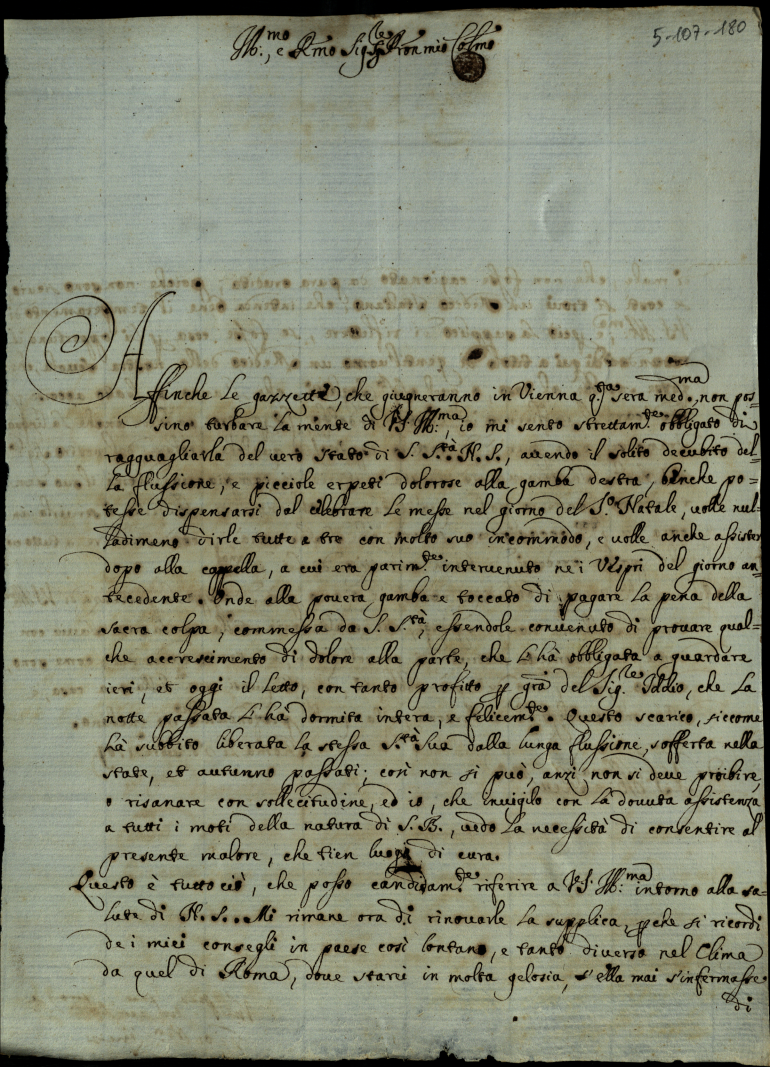 5-107-180
Ill:mo, e Rmo Sig:le Pron mio Colmo
Affinche le gazzette, che giugneranno in Vienna q:ta sera med:ma, non pos=
sino turbare la mente di VS. Ill:ma, io mi sento strettam:te obbligato di
ragguagliarla del vero stato di S. S.tà N. S., avendo il solito decubito del=
la flussione, e picciole erpeti dolorose alla gamba destra, binche po=
tesse dispensarsi dal celebrare le messe nel giorno del S.o Natale, volle nul=
ladimeno dirle tutte a tre con molto suo incommodo, e volle anche assister
dopo alla cappella, a cui era parim:te intervenuto ne i Vespri del giorno an=
tecedente. Onde alla povera gamba e toccato di pagare la pena della
sacra colpa, commessa da S. S.tà, essendole convenuto di provare qual=
che accrescimento di dolore alla parte, che l'hà obbligata a guardare
ieri, et oggi il letto, con tanto profitto p gra del Sig.re Iddio, che la
notte passata l'hà dormita intera, e felicem:te. Questo scarico, siccome
hà subbito liberata la stessa S.tà Sua dalla lunga flussione, sofferta nella
state, et autunno passati; così non si può, anzi non si deve proibire,
o risanare con sollecitudine, ed io, che invigilo con la dovuta assistenza
a tutti i moti della natura di S. B., vedo la necessità di consentire al
presente malore, che tien luogo di cura.
Questo è tutto ciò, che posso candidam:te riferire a VS. Ill:ma intorno alla sa=
lute di N. S.. Mi rimane ora di rinovarle la supplica, pche si ricordi
de i miei consegli in paese così lontano, e tanto diverso nel Clima
da quel di Roma, dove starei in molta gelosia, s'ella mai s'infermasse
di